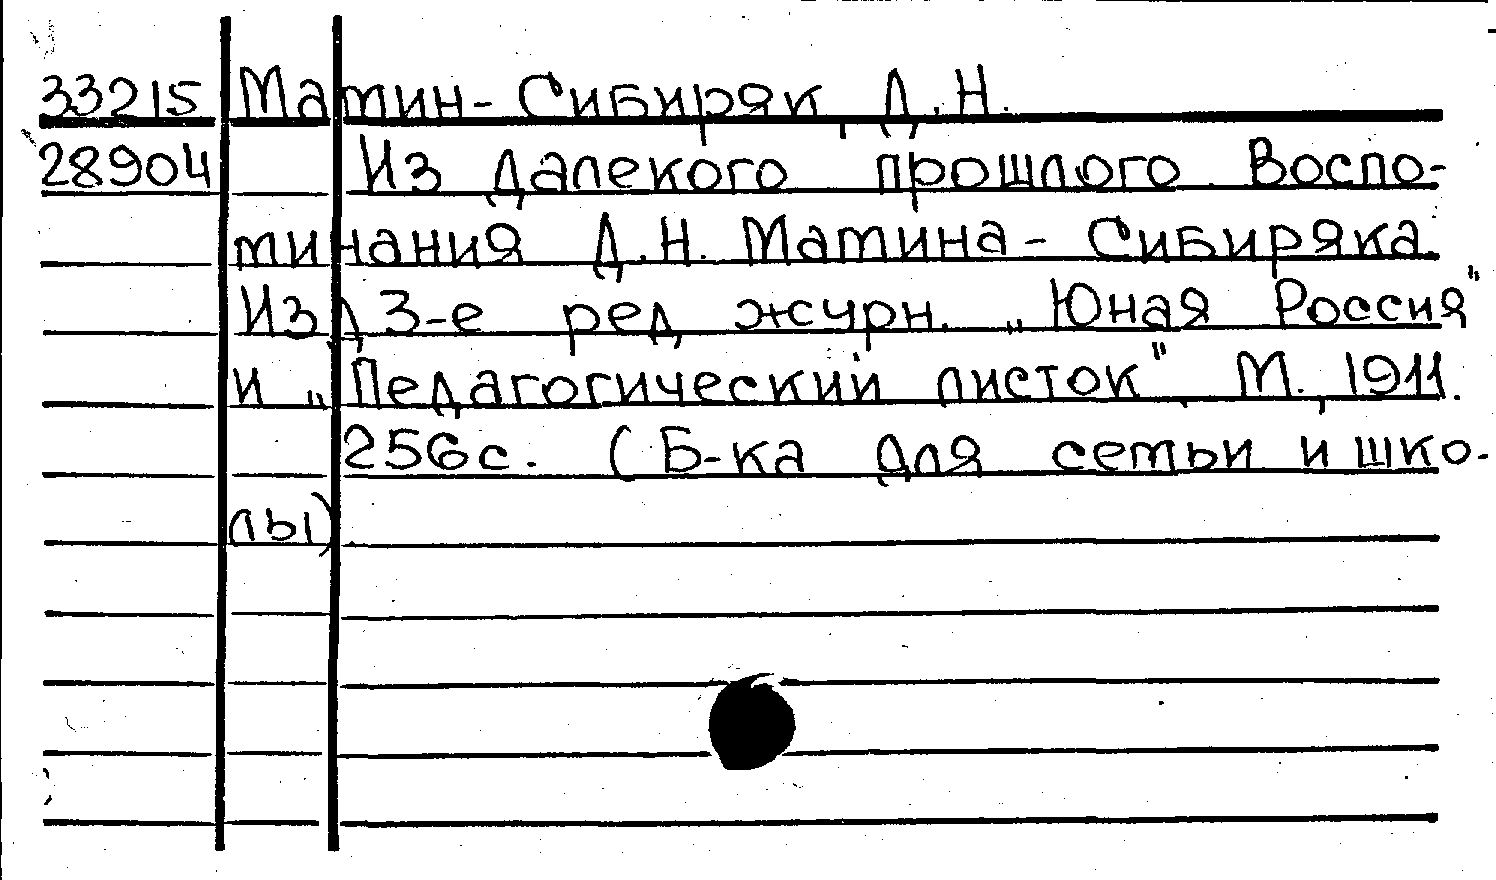 33215 Мамин-Сибиряк, Д.Н.
28904 Из далекого прошлого. Воспо-
минания Д.Н. Мамина-Сибиряка.
Изд 3-е ред журн. „Юная Россия"
и „Педагогический листок". М., 1911.
256с. (Б-ка для семьи и шко-
лы).